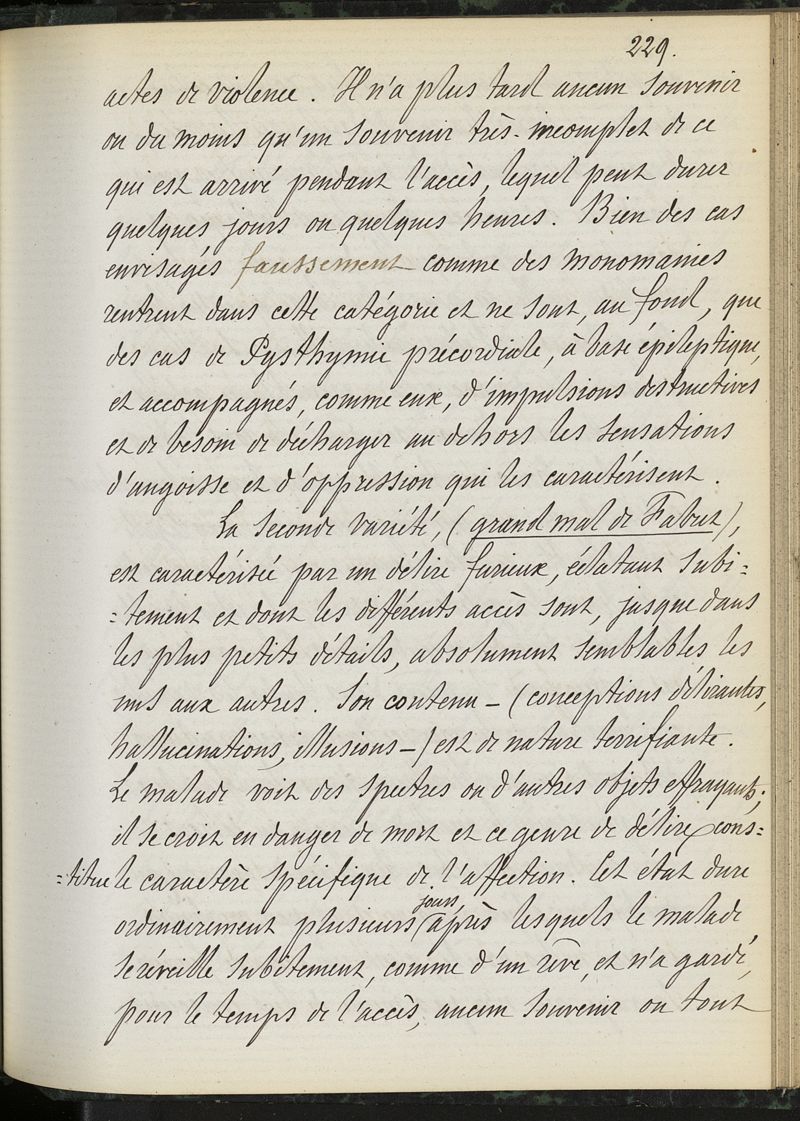 229.
actes de violence. Il n'a plus tard aucun souvenir
ou du moins qu'un souvenir très-incomplet de ce
qui est arrivé pendant l'accès, lequel peut durer
quelques jours ou quelques heures. Bien des cas
envisagés faussement comme des monomanies
rentrent dans cette catégorie et ne sont, au fond, que
des cas de Dysthymie précordiale, à base épileptique,
et accompagnés, comme eux, d'impulsions destructives
et de besoin de décharger au dehors les sensations
d'angoisse et d'oppression qui les caractérisent.
La seconde variété, (grand mal de Falret),
est caractérisée par un délire furieux, éclatant subi=
=tement et dont les différents accès sont, jusque dans
les plus petits détails, absolument semblables les
uns aux autres. Son contenu – (conceptions délirantes,
hallucinations, illusions –) est de nature terrifiante.
Le malade voit des spectres ou d'autres objets effrayants;
il se croit en danger de mort et ce genre de délire cons=
=titue le caractère spécifique de l'affection. Cet état dure
ordinairement plusieurs jours, après lesquels le malade
se réveille subitement, comme d'un rêve, et n'a gardé,
pour le temps de l'accès, aucun souvenir ou tout